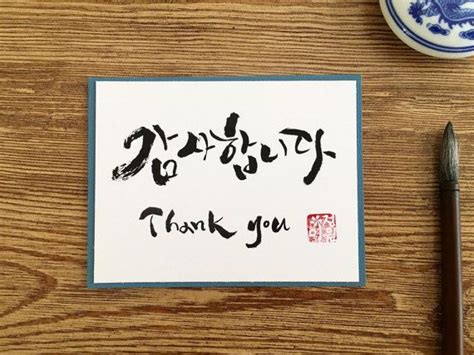 감사합니다
Thank you